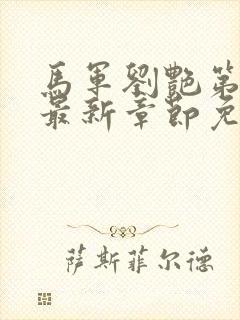 馬軍劉艷第
最新章節免
萨斯菲尔德